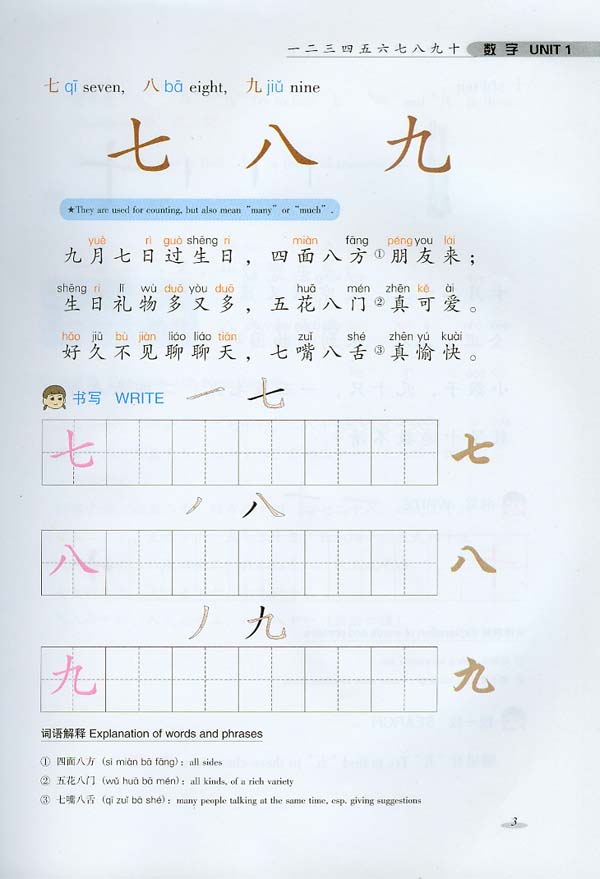 一二三四五六七八九十 数字 UNIT 1
七 qī seven, 八 bā eight, 九 jiǔ nine
七 八 九
★They are used for counting, but also mean "many" or "much".
yuè rì guò shēng ri miàn fāng péng you lái
九月七日过生日，四面八方①朋友来；
shēng ri lǐ wù duō yòu duō huā mén zhēn kě ài
生日礼物多又多，五花八门②真可爱。
hǎo jiǔ bù jiàn liáo liáo tiān zuǐ shé zhēn yú kuài
好久不见聊聊天，七嘴八舌③真愉快。
书写 WRITE 一 七
七 七
丿 八
八 八
丿 九
九 九
词语解释 Explanation of words and phrases
① 四面八方（sì miàn bā fāng）：all sides
② 五花八门（wǔ huā bā mén）：all kinds, of a rich variety
③ 七嘴八舌（qī zuǐ bā shé）：many people talking at the same time, esp. giving suggestions
3